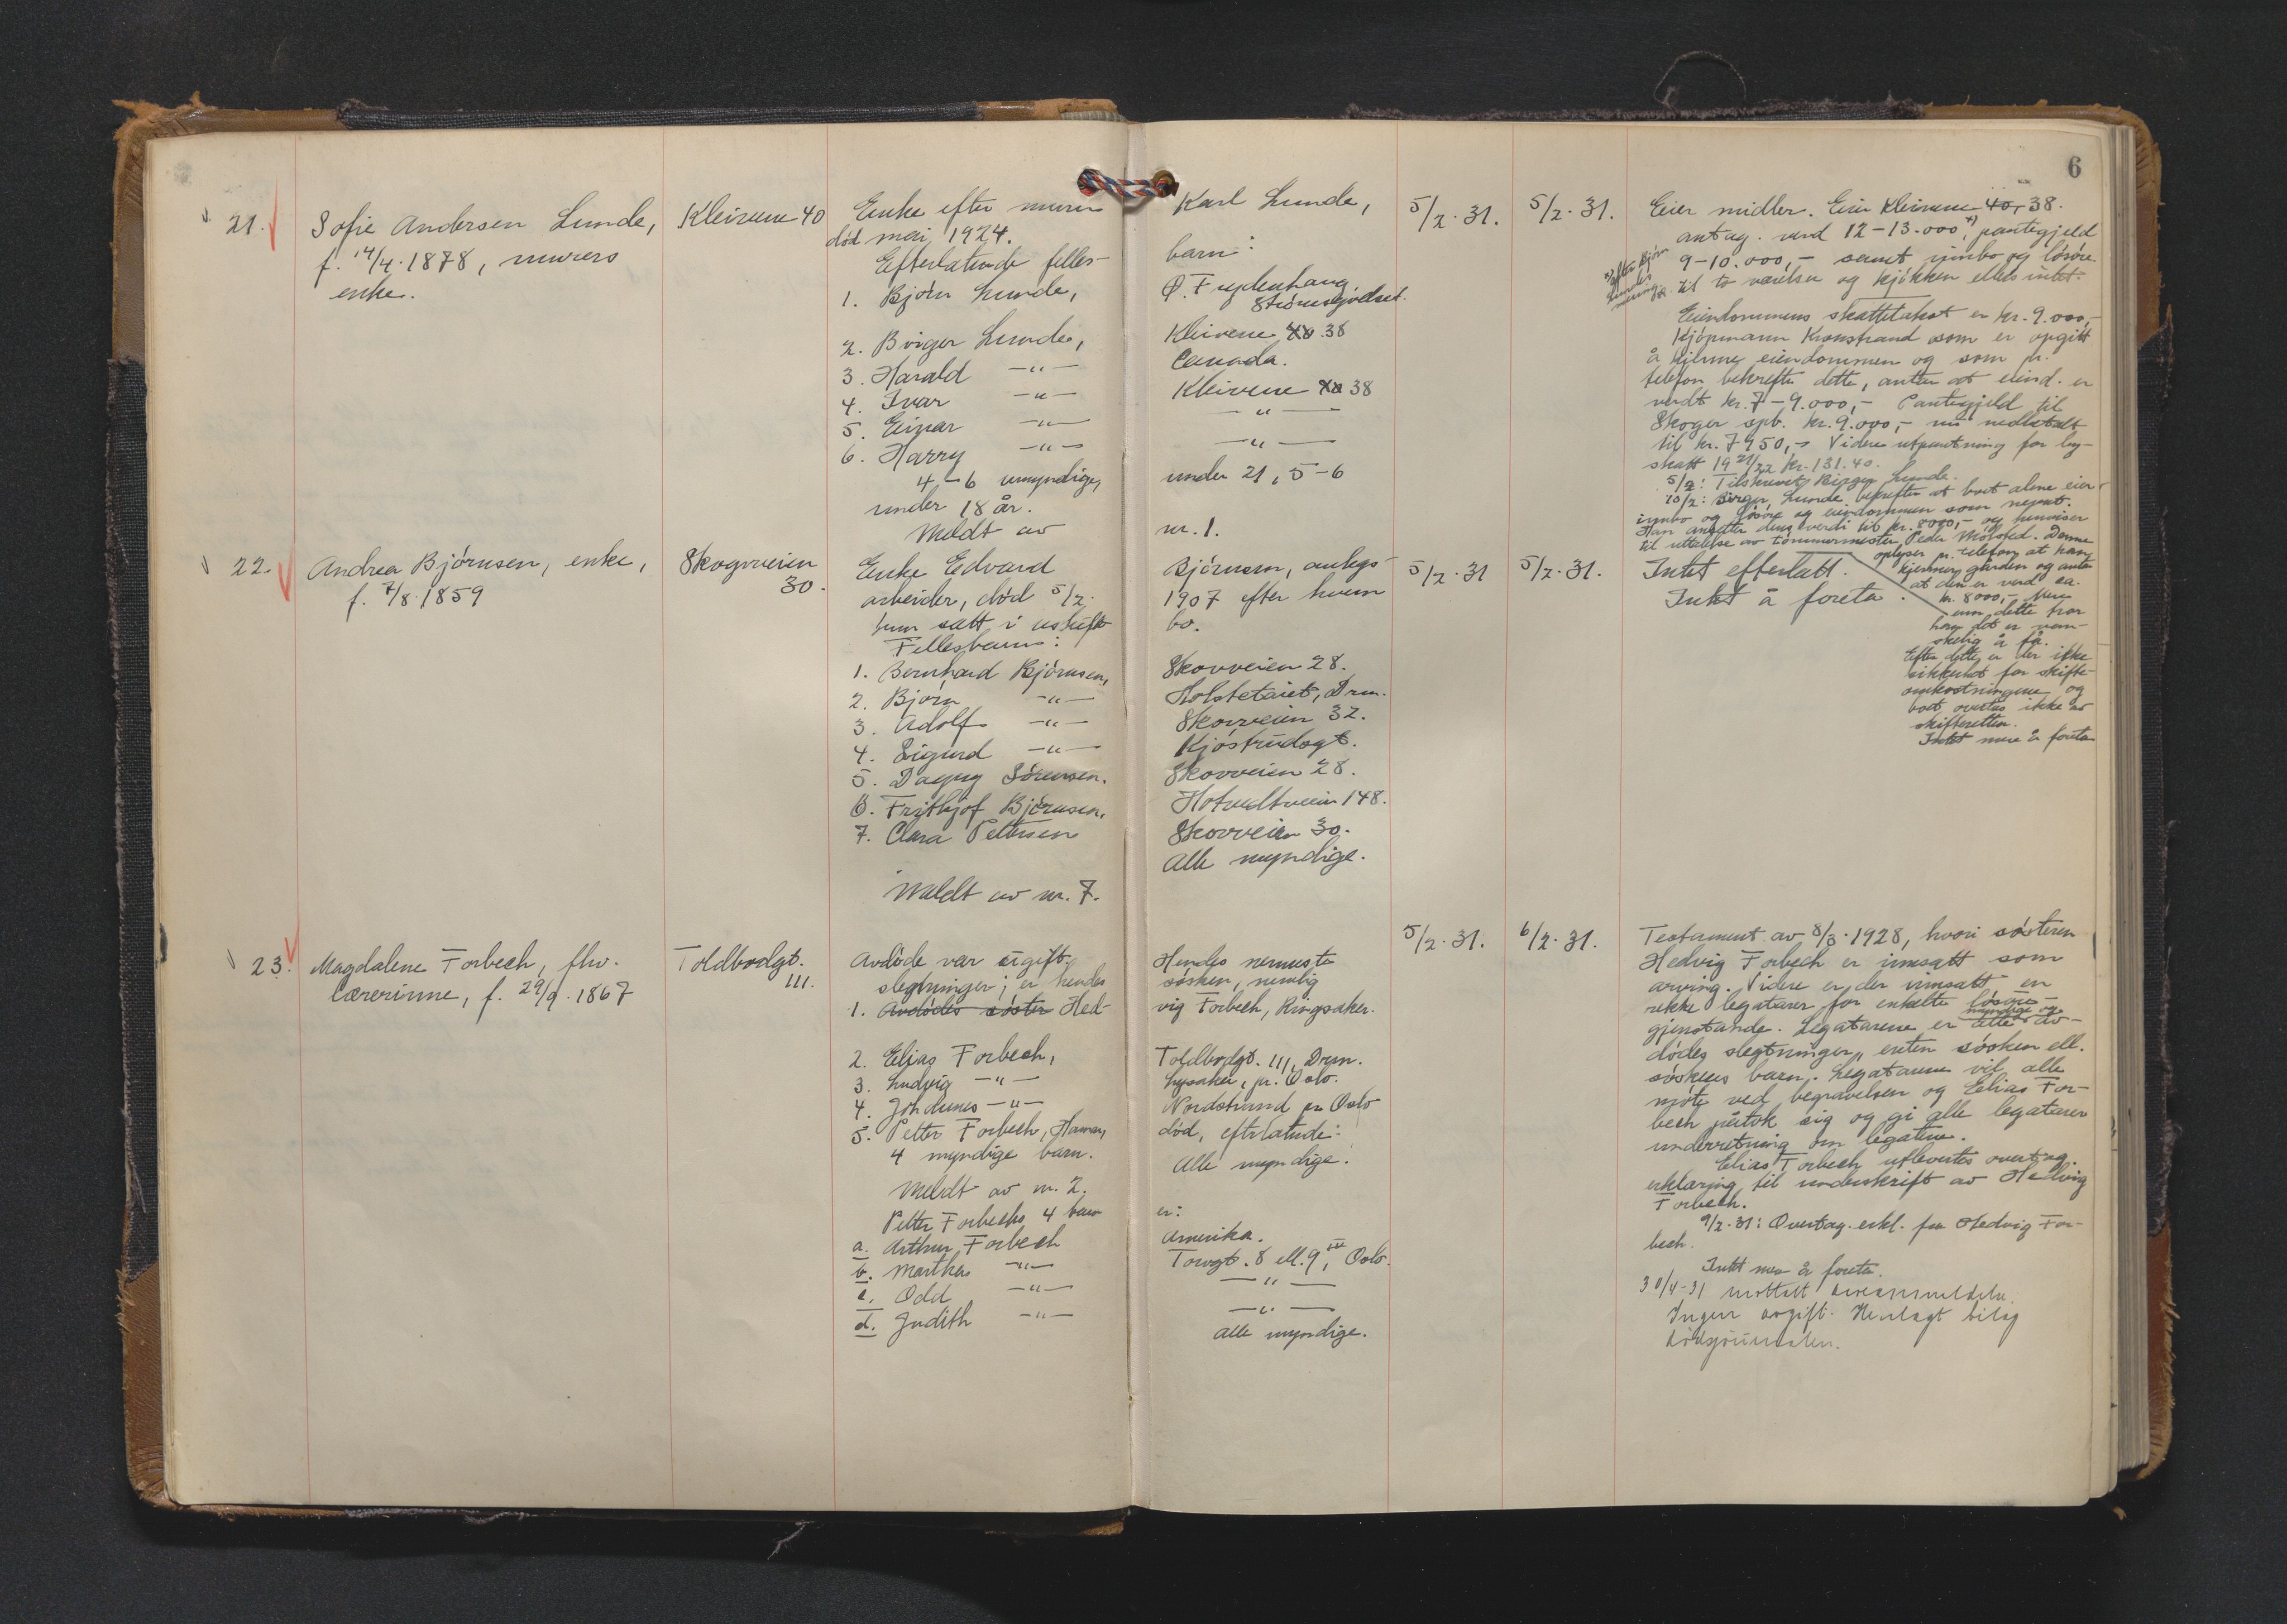 6
21. Sofie Andersen Lunde,
f. 14/4.1878, murers
enke.
Kleivene 40
Enke efter murer Karl Lunde,
død mai 1924.
Efterlatende felles- barn:
1. Bjørn Lunde, Ø. Frydenhaug, Strømsgodset.
2. Birger Lunde, Kleivene 40 38
3. Harald -"- Canada.
4. Ivar -"- Kleivene 40 38
5. Einar -"- -"-
6. Harry -"- -"-
4-6 umyndige, under 21, 5-6
under 18 år.
Meldt av nr. 1.
5/2.31. 5/2.31.
Eier midler. Eier Kleivene 40, 38.
antag. verd 12-13.000 x), pantegjeld
9-10.000,- samt innbo og løsøre
til to værelser og kjøkken ellers intet.
x) efter Bjørn
Lundes
mening
Eiendommens skattetakst er kr. 9.000,-
Kjøpmann Kronstrand som er opgitt
å kjenne eiendommen og som pr.
telefon bekrefter dette, antar at eiend. er
verdt kr. 7-9.000,- Pantegjeld til
Skoger spb. kr. 9.000,- nu nedbetalt
til kr. 7950,- Videre utpantning for by-
skatt 1921/22 kr. 131.40.
5/2: Tilskrevet Birger Lunde.
10/2: Birger Lunde bekrefter at boet alene eier
innbo og løsøre og eiendommen som nevnt.
Han ansetter dens verdi til kr. 8000,- og henviser
til uttalelse av tømmermester Peder Mølsted. Denne
oplyser pr. telefon at han
kjenner gården og antar
at den er verd ca.
kr. 8000,- Men
om dette har
han det er van-
skelig å få.
Efter dette er der ikke
sikkerhet for skifte-
omkostningene og
boet overtas ikke av
skifteretten.
Intet mere å foreta
22. Andrea Bjørnsen, enke,
f. 7/8.1859
Skogveien
30.
Enke Edvard Bjørnsen, anlegs-
arbeider, død 5/2. 1907 efter hvem
hun satt i uskiftet bo.
Fellesbarn:
1. Bernhard Bjørnsen, Skovveien 28.
2. Bjørn -"- Holstetøiet, Drm.
3. Adolf -"- Skovveien 32.
4. Sigurd -"- Kjøstrudsgt.
5. Dagny Sørensen. Skovveien 28.
6. Frithjof Bjørnsen. Hotvedtveien 148.
7. Clara Pettersen Skovveien 30.
Alle myndige.
Meldt av nr. 7.
5/2.31 5/2.31.
Intet efterlatt.
Intet å foreta.
23. Magdalene Forbech, fhv.
Lærerinne, f. 29/9.1867
Toldbodgt.
111.
Avdøde var ugift. Hendes nermeste
slegtninger er hendes søsken, nemlig
1. Avdødes søster Hedvig Forbech, Ringsaker.
2. Elias Forbech, Toldbodgt. 111, Drm.
3. Ludvig -"- Lysaker, pr. Oslo.
4. Johannes -"- Nordstrand pr. Oslo
5. Petter Forbech, Hamar, død, efterlatende:
4 myndige barn. Alle myndige.
Meldt av nr. 2.
Petter Forbechs 4 barn er:
a. Arthur Forbech Amerika.
b. Martha -"- Torvgt. 8 ell. 9, III Oslo.
c. Odd -"- -"-
d. Judith -"- -"-
alle myndige.
5/2.31. 6/2.31.
Testament av 8/3.1928, hvori søsteren
Hedvig Forbech er innsatt som
arving. Videre er der innsatt en
rekke legatarer for enkelte løsøre-
gjenstande. Legatarene er alle myndige og av-
dødes slegtninger, enten søsken ell.
søskens barn. Legatarene vil alle
møte ved begravelsen og Elias For-
bech påtok sig og gi alle legatarer
underretning om legatene.
Elias Forbech utlevertes overtag.
erklæring til underskrift av Hedvig
Forbech.
9/2.31: Overtag. erkl. fra Hedvig For-
bech.
Intet mer å foreta.
30/4-31 mottatt
Ingen avgift. Henlagt bilag
dødsjournalen.